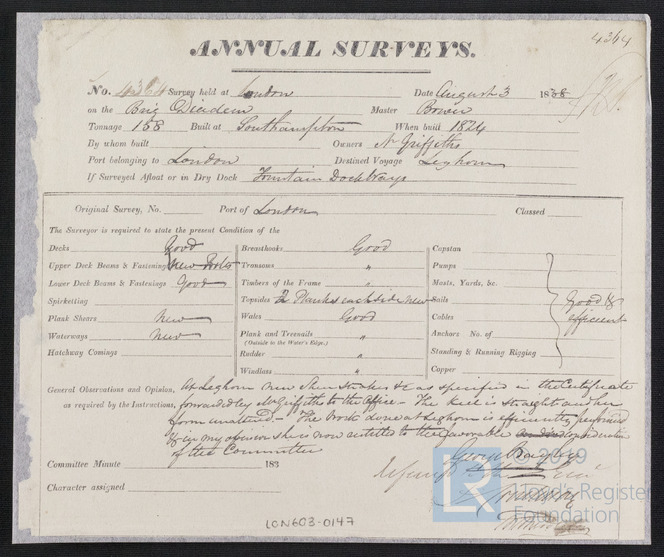 4364
ANNUAL SURVEYS.
No. 4364 Survey held at London Date August 3 1838
on the Brig Diadem Master Brown
Tonnage 188 Built at Southampton When built 1824
By whom built Owners N Griffiths
Port belonging to London Destined Voyage Leghorn
If Surveyed Afloat or in Dry Dock Fountain Dock
Original Survey, No. Port of London Classed
The Surveyor is required to state the present Condition of the
Decks Good
Upper Deck Beams & Fastenings New Bolts
Lower Deck Beams & Fastenings Good
Spirketting
Plank Shears New
Waterways New
Hatchway Comings
Breasthooks Good
Transoms "
Timbers of the Frame "
Topsides 2 Planks each side New
Wales Good
Plank and Treenails "
(Outside to the Water's Edge.)
Rudder "
Windlass "
Capstan
Pumps
Masts, Yards, &c.
Sails Good &
Cables efficient
Anchors No. of
Standing & Running Rigging
Copper
General Observations and Opinion, At Leghorn new Sheer Strakes &c as specified in the Certificate
as required by the Instructions, forwarded by Mr Griffiths to the Office - The Keel is straight and her
form unaltered - The work done at Leghorn is efficiently performed
& in my opinion she is now entitled to the favorable consideration
of the Committee
George Bayley
Committee Minute 183
Character assigned
LON603-0147
© 2019
LR
Lloyd's Register
Foundation